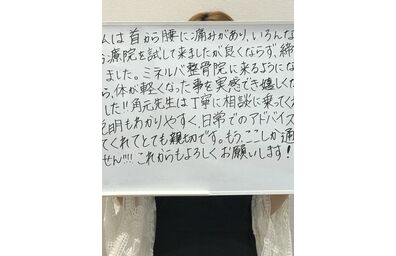 んは首から腰に痛みがあり、いろんな
療院を試して来ましたが良くならず、締
ました。ミネルバ整骨院に来るようにな
ら、体が軽くなった事を実感でき嬉しくな
した!!角元先生は丁寧に相談に乗ってく
明もわかりやすく、日常でのアドバイス
てくれてとても親切です。もう、ここしか通
せん!!!!これからもよろしくお願いします!